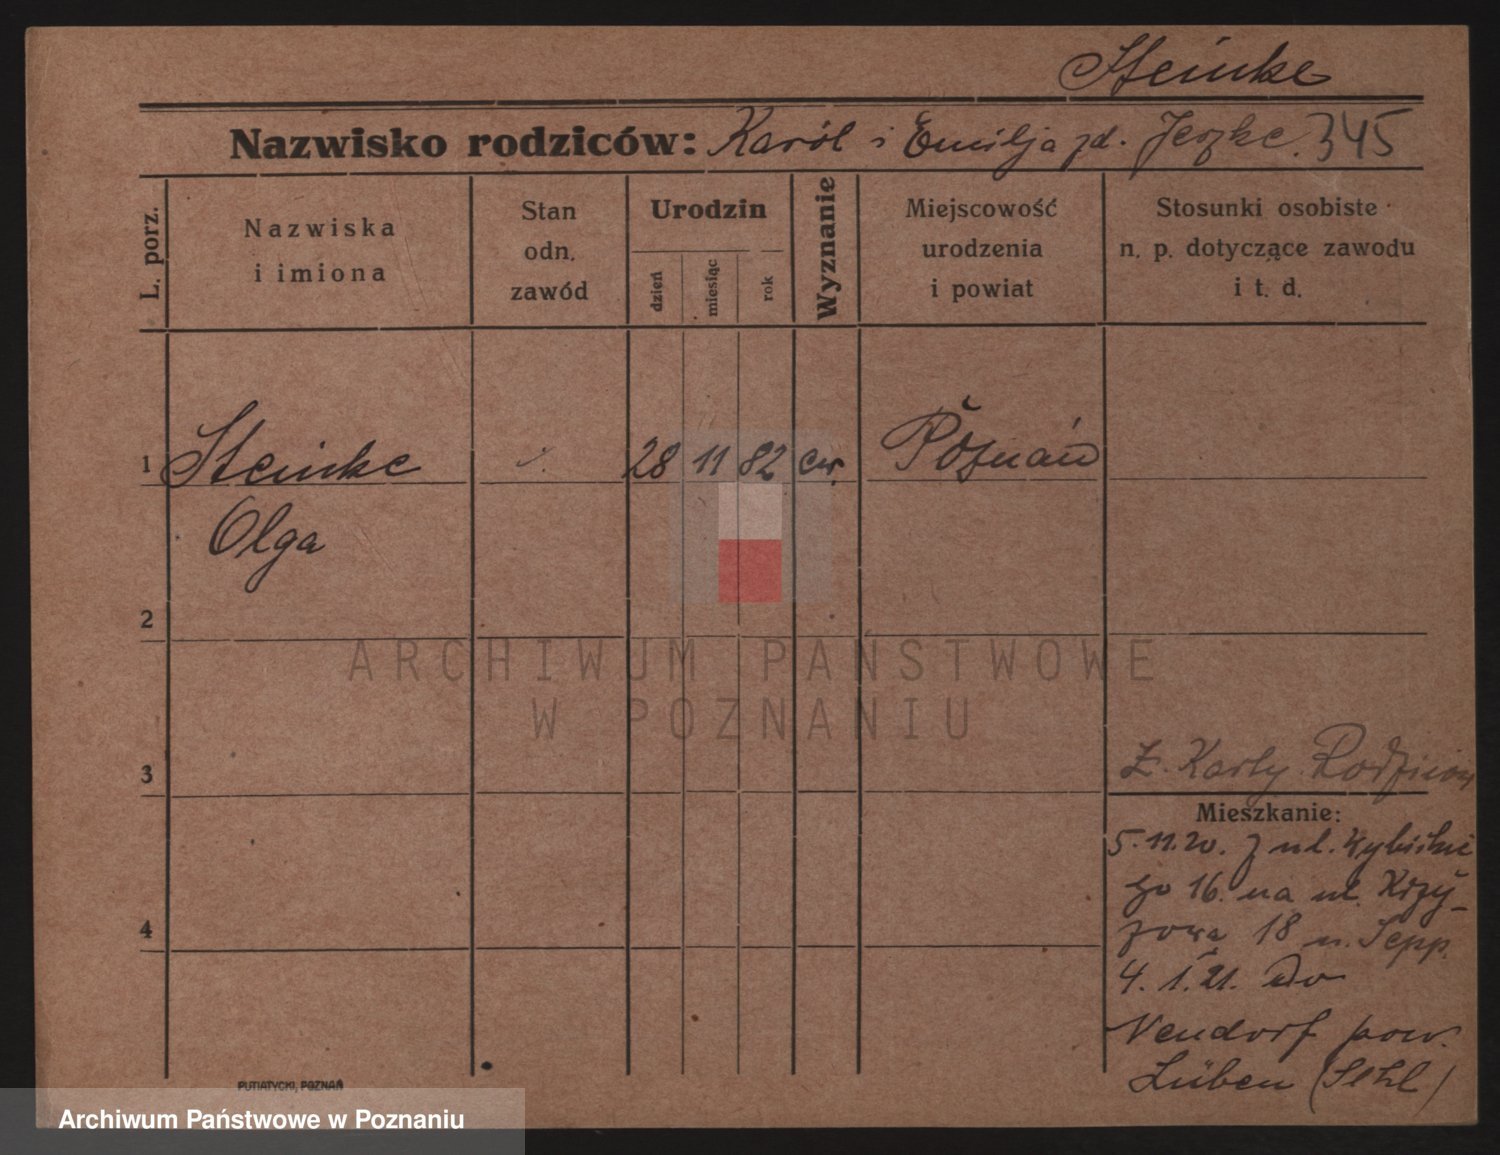 Steinke
Nazwisko rodziców: Karól i Emilja zd. Jeszke. 345
L. porz.
Nazwiska
i imiona
Stan
odn.
zawód
Urodzin
dzień
miesiąc
rok
Wyznanie
Miejscowość
urodzenia
i powiat
Stosunki osobiste
n. p. dotyczące zawodu
i t. d.
1 Steinke 28 11 82 ew. Poznań
Olga
2
3
Z. Karty Rodziców
Mieszkanie:
5.11.20. z ul. Wybickie
go 16. na ul. Krzy-
zową 18 u. Sepp.
4
4.1.21. Do
Neudorf pow.
Lüben (Schl)
PUTIATYCKI, POZNAŃ
ARCHIWUM PAŃSTWOWE
W POZNANIU
Archiwum Państwowe w Poznaniu